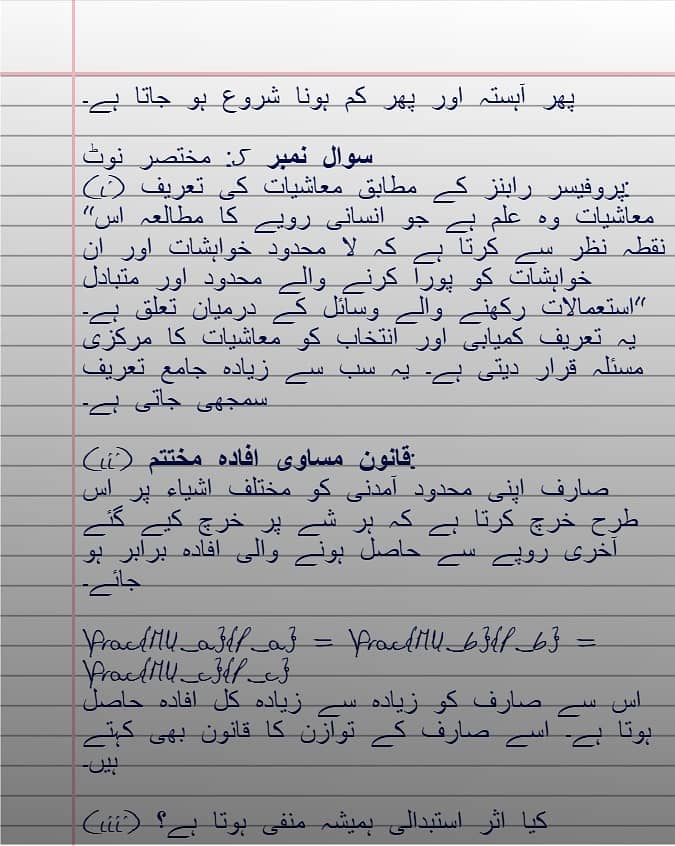 پھر آہستہ اور پھر کم ہونا شروع ہو جاتا ہے۔
سوال نمبر 5: مختصر نوٹ
(i) پروفیسر رابنز کے مطابق معاشیات کی تعریف:
"معاشیات وہ علم ہے جو انسانی رویے کا مطالعہ اس
نقطہ نظر سے کرتا ہے کہ لا محدود خواہشات اور ان
خواہشات کو پورا کرنے والے محدود اور متبادل
استعمالات رکھنے والے وسائل کے درمیان تعلق ہے۔"
یہ تعریف کمیابی اور انتخاب کو معاشیات کا مرکزی
مسئلہ قرار دیتی ہے۔ یہ سب سے زیادہ جامع تعریف
سمجھی جاتی ہے۔
(ii) قانون مساوی افادہ مختتم:
صارف اپنی محدود آمدنی کو مختلف اشیاء پر اس
طرح خرچ کرتا ہے کہ ہر شے پر خرچ کیے گئے
آخری روپے سے حاصل ہونے والی افادہ برابر ہو
جائے۔
\frac{MU_a}{P_a} = \frac{MU_b}{P_b} =
\frac{MU_c}{P_c}
اس سے صارف کو زیادہ سے زیادہ کل افادہ حاصل
ہوتا ہے۔ اسے صارف کے توازن کا قانون بھی کہتے
ہیں۔
(iii) کیا اثر استبدالی ہمیشہ منفی ہوتا ہے؟